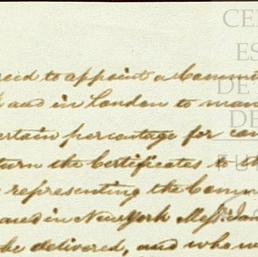 CE
ES
DE
DE
FU
reed to appoint a Commi
and in London to man
ertain percentage for co
turn the Certificates & sh
representing the Comm
aued in New York Mess
be delivered, and who w